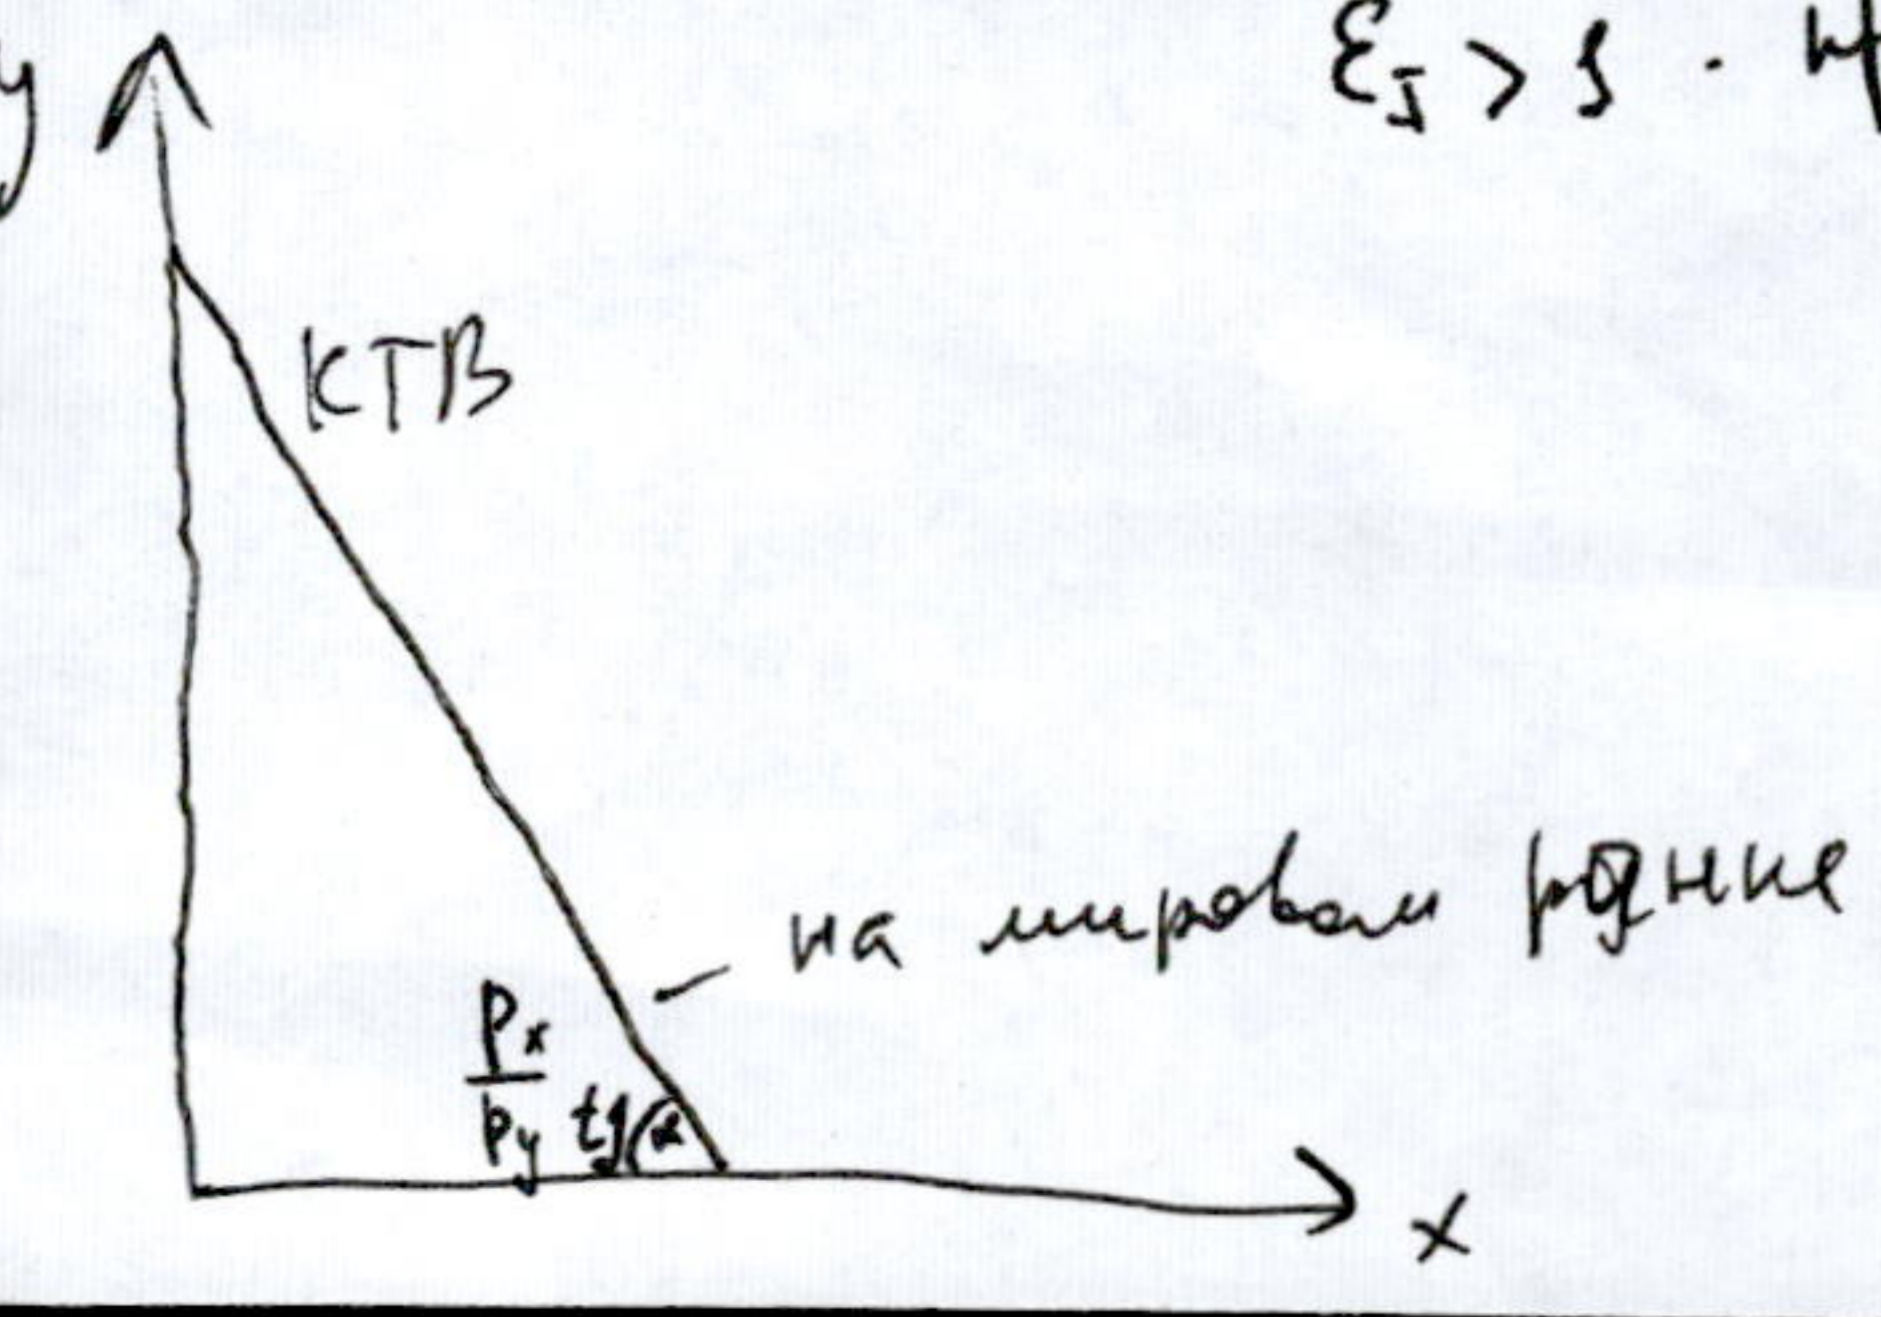 y
ε_I > 1 ·
КТВ
на мировом рынке
Px
Py tg α
x